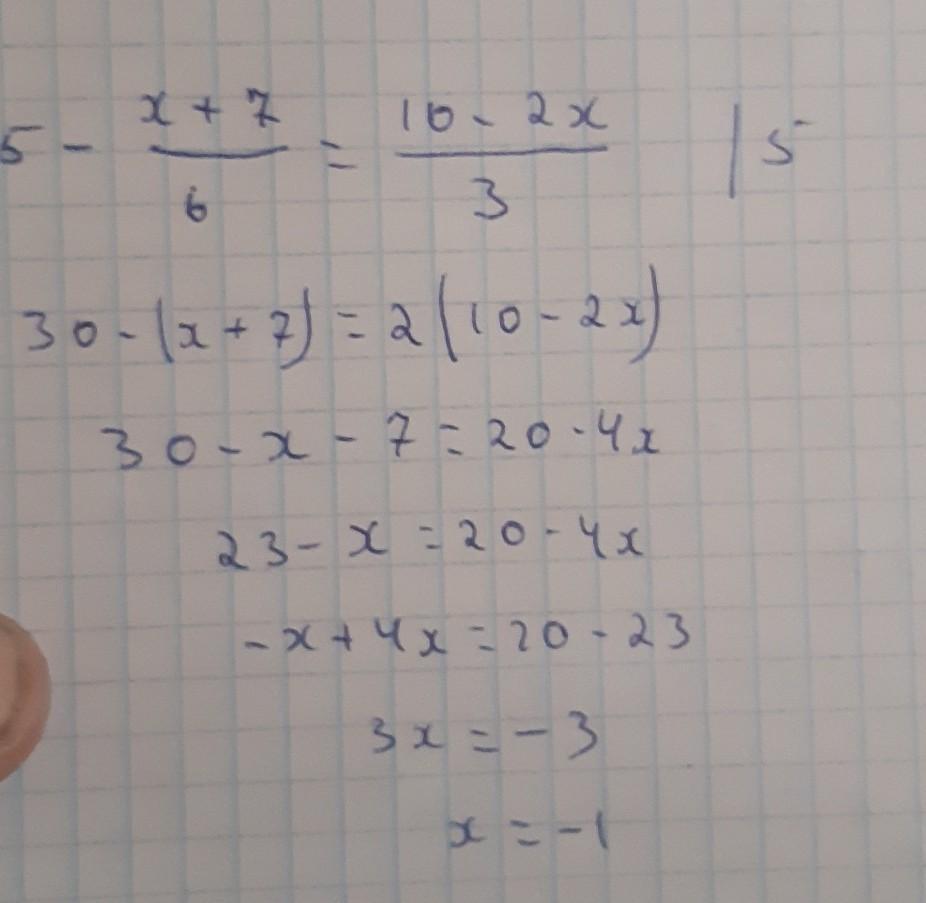 5 - \frac{x + 7}{6} = \frac{10 - 2x}{3} | 5
30 - (x + 7) = 2(10 - 2x)
30 - x - 7 = 20 - 4x
23 - x = 20 - 4x
-x + 4x = 20 - 23
3x = -3
x = -1